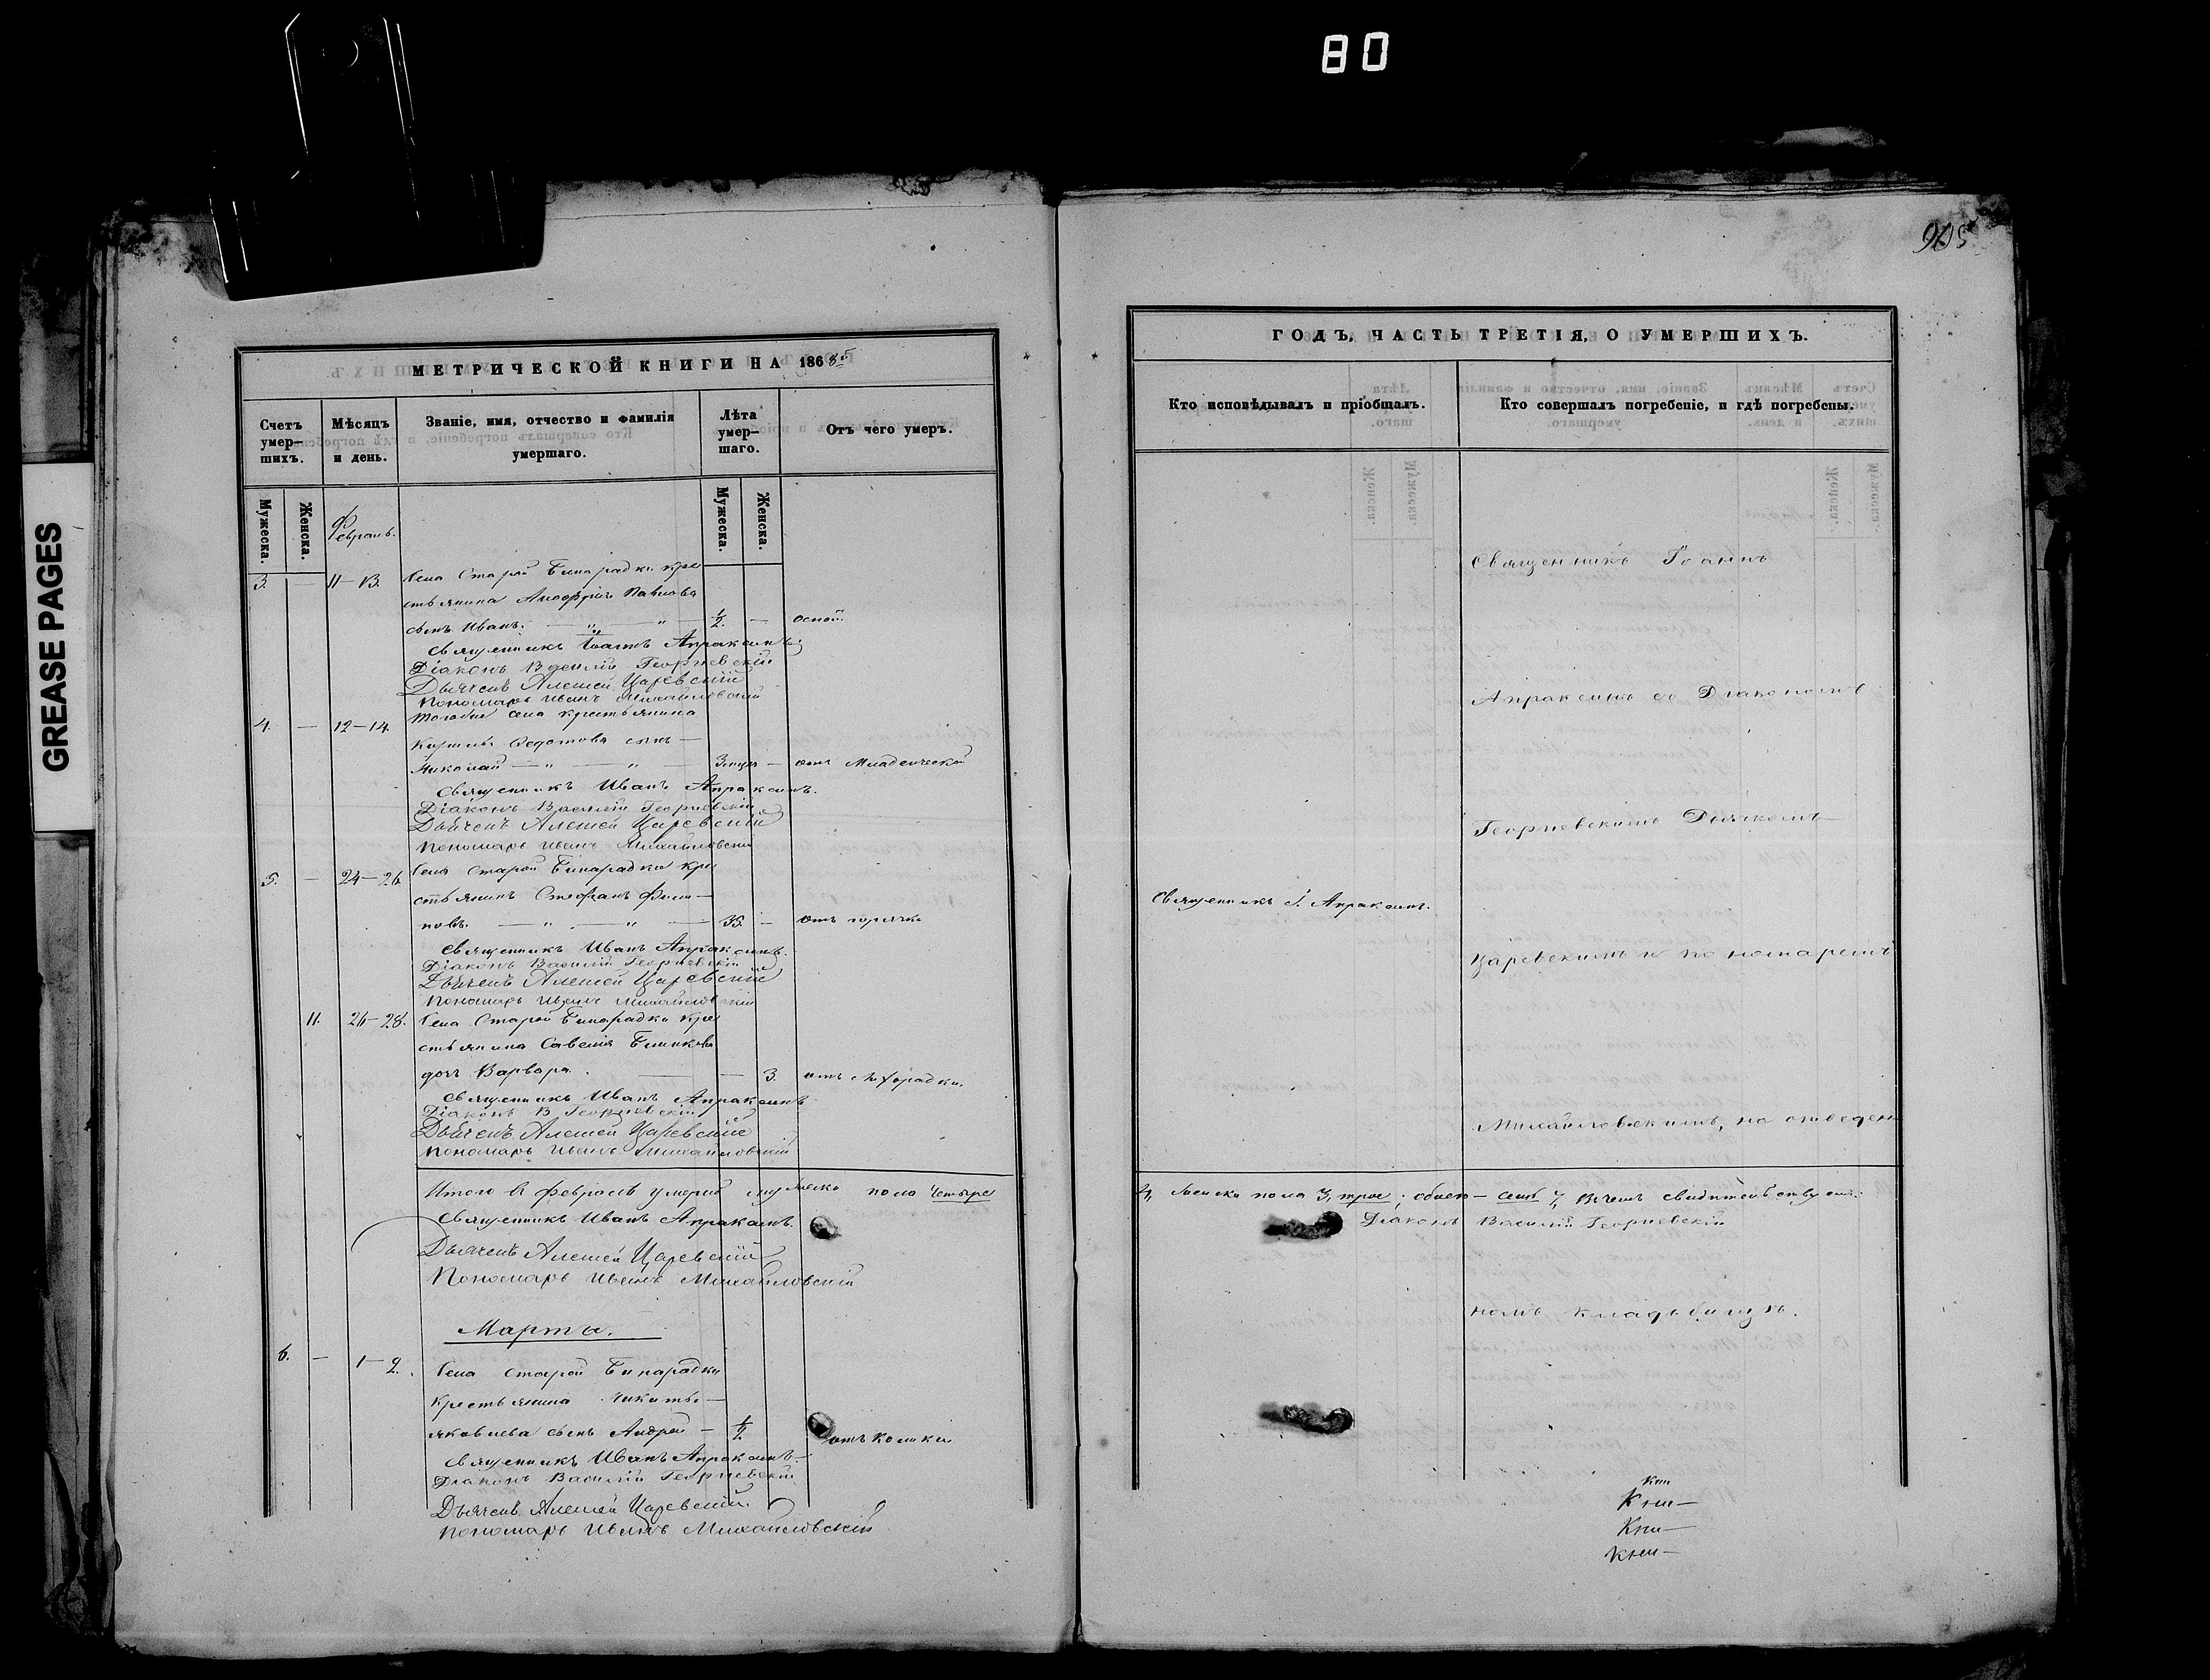 80
GREASE PAGES
905
МЕТРИЧЕСКОЙ КНИГИ НА 1868
Счетъ умер-шихъ.
Мѣсяцъ и день.
Званіе, имя, отчество и фамилія умершаго.
Лѣта умер-шаго.
Отъ чего умеръ.
Мужеска.
Женска.
Февраль.
Мужеска.
Женска.
3. — 11-13. Села Старой Бинарадки кре
стьянина Павлова
сынъ Иванъ. — „ — „ — ½. — оспой.
Священникъ Іоаннъ Апраксинъ
Діаконъ Василій Георгіевскій
Дьячекъ Алексей Царевскій
Пономарь Иванъ Михайловскій
4. — 12-14. Тогоже села крестьянина
Кирилы Федотова сынъ —
Николай — „ — „ — — отъ Младенческой
Священникъ Иванъ Апраксинъ.
Діаконъ Василій Георгіевскій
Дьячекъ Алексей Царевскій
Пономарь Иванъ Михайловскій
5. — 24-26. Села Старой Бинарадки кре
стьянинъ Стефанъ Фили—
повъ. — „ — „ — 35. — отъ горячки
Священникъ Иванъ Апраксинъ.
Діаконъ Василій Георгіевскій
Дьячекъ Алексей Царевскій
Пономарь Иванъ Михайловскій
11. 26-28. Села Старой Бинарадки кре
стьянина Савелія
дочь Варвара. — — 3. отъ лихорадки.
Священникъ Иванъ Апраксинъ
Діаконъ В Георгіевскій
Дьячекъ Алексей Царевскій
Пономарь Иванъ Михайловскій
Итого въ Февралѣ умерш мужеска пола четыре
Священникъ Иванъ Апраксинъ.
Дьячекъ Алексей Царевскій
Пономарь Иванъ Михайловскій
Марта.
6. — 1-2. Села Старой Бинарадки
крестьянина Никиты —
Яковлева сынъ Андрей — ½ отъ колики
Священникъ Иванъ Апраксинъ
Діаконъ Василій Георгіевскій
Дьячекъ Алексей Царевскій
Пономарь Иванъ Михайловскій
ГОДЪ, ЧАСТЬ ТРЕТІЯ, О УМЕРШИХЪ.
Кто исповѣдывалъ и пріобщалъ.
Кто совершалъ погребеніе, и гдѣ погребены.
Священникъ Іоаннъ
Апраксинъ со Діакономъ
Георгіевскимъ Дьячкомъ
Священникъ І. Апраксинъ.
Царевскимъ и пономаремъ
Михайловскимъ, на отведен
4, женска пола 3, трое; обоего — семь 7, въ чемъ свидѣтельствуемъ:
Діаконъ Василій Георгіевскій
номъ кладьбищѣ.
Кни—
Кни—
Кни—